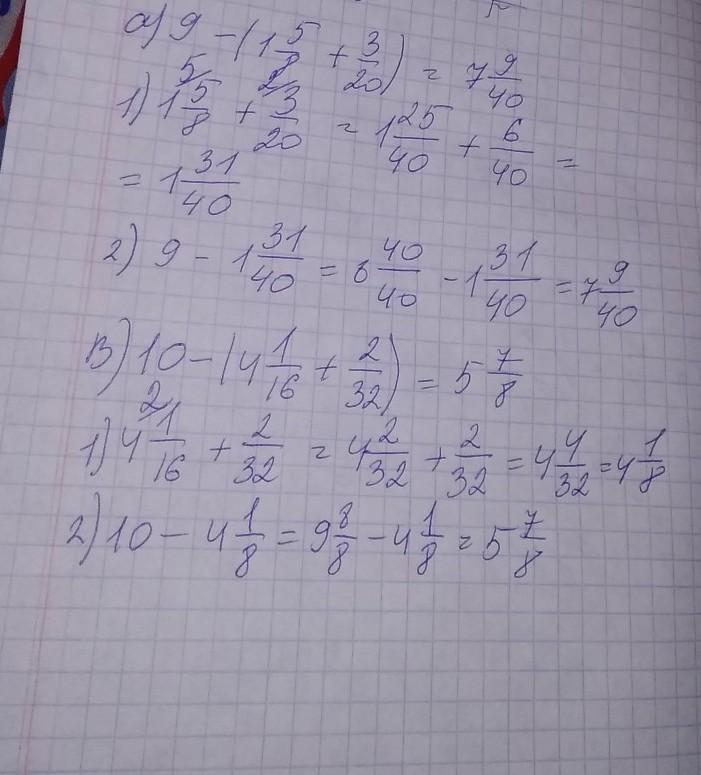 а) 9 - (1 5/8 + 3/20) = 7 9/40
1) 1 5/8 + 3/20 = 1 25/40 + 6/40 =
= 1 31/40
2) 9 - 1 31/40 = 8 40/40 - 1 31/40 = 7 9/40
в) 10 - (4 1/16 + 2/32) = 5 7/8
1) 4 1/16 + 2/32 = 4 2/32 + 2/32 = 4 4/32 = 4 1/8
2) 10 - 4 1/8 = 9 8/8 - 4 1/8 = 5 7/8